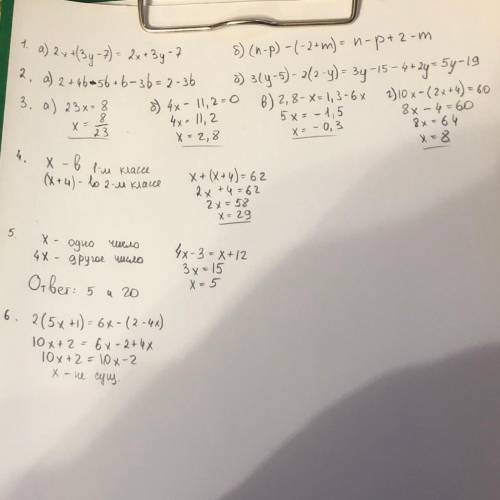 1. а) 2x+(3y-7) = 2x+3y-7 б) (n-p)-(-2+m) = n-p+2-m
2. а) 2+4b-5b+b-3b = 2-3b б) 3(y-5)-2(2-y) = 3y-15-4+2y = 5y-19
3. а) 23x = 8 б) 4x-11,2=0 в) 2,8-x=1,3-6x г) 10x-(2x+4)=60
x = 8/23 4x = 11,2 5x = -1,5 8x-4=60
x = 2,8 x = -0,3 8x = 64
x = 8
4. x - в 1-м классе
(x+4) - во 2-м классе x+(x+4)=62
2x+4=62
2x = 58
x = 29
5. x - одно число 4x-3 = x+12
4x - другое число 3x = 15
Ответ: 5 и 20 x = 5
6. 2(5x+1) = 6x-(2-4x)
10x+2 = 6x-2+4x
10x+2 = 10x-2
x - не сущ.